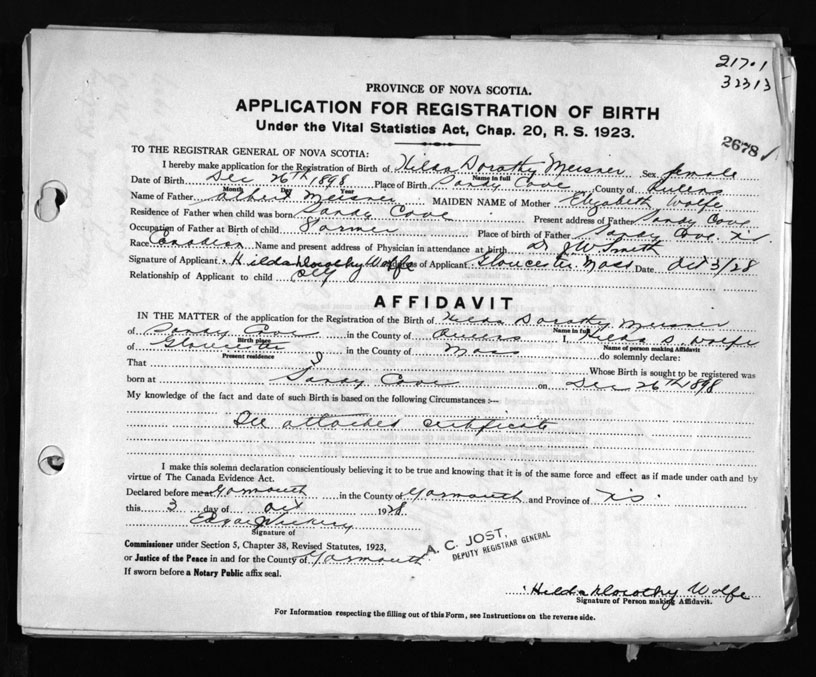 217·1
32313
PROVINCE OF NOVA SCOTIA.
APPLICATION FOR REGISTRATION OF BIRTH
Under the Vital Statistics Act, Chap. 20, R. S. 1923.
2678
TO THE REGISTRAR GENERAL OF NOVA SCOTIA:
I hereby make application for the Registration of Birth of Hilda Dorothy Meisner Sex female
Name in full
Date of Birth Dec 26TH 1898 Place of Birth Sandy Cove County of Queens
Month Day Year
Name of Father Albert Meisner MAIDEN NAME of Mother Elizabeth Wolfe
Residence of Father when child was born Sandy Cove Present address of Father Sandy Cove
Occupation of Father at Birth of child Farmer Place of birth of Father Sandy Cove N.S
Race Canadian Name and present address of Physician in attendance at birth Dr J W Smith
Signature of Applicant Hilda Dorothy Wolfe of Applicant Gloucester Mass Date Oct 3/28
Relationship of Applicant to child self
AFFIDAVIT
IN THE MATTER of the application for the Registration of the Birth of Hilda Dorothy Meisner
Name in full
of Sandy Cove in the County of Queens I, Hilda D. Wolfe
Birth place Name of person making Affidavit
of Gloucester in the County of Mass do solemnly declare:
Present residence
That I Whose Birth is sought to be registered was
born at Sandy Cove on Dec 26TH 1898
My knowledge of the fact and date of such Birth is based on the following Circumstances :—
See attached certificate
I make this solemn declaration conscientiously believing it to be true and knowing that it is of the same force and effect as if made under oath and by
virtue of The Canada Evidence Act.
Declared before me at Yarmouth in the County of Yarmouth and Province of N.S.
this 3 day of Oct 1928
Signature of
Commissioner under Section 5, Chapter 38, Revised Statutes, 1923,
or Justice of the Peace in and for the County of Yarmouth
If sworn before a Notary Public affix seal.
A. C. JOST,
DEPUTY REGISTRAR GENERAL
Hilda Dorothy Wolfe
Signature of Person making Affidavit.
For Information respecting the filling out of this Form, see Instructions on the reverse side.